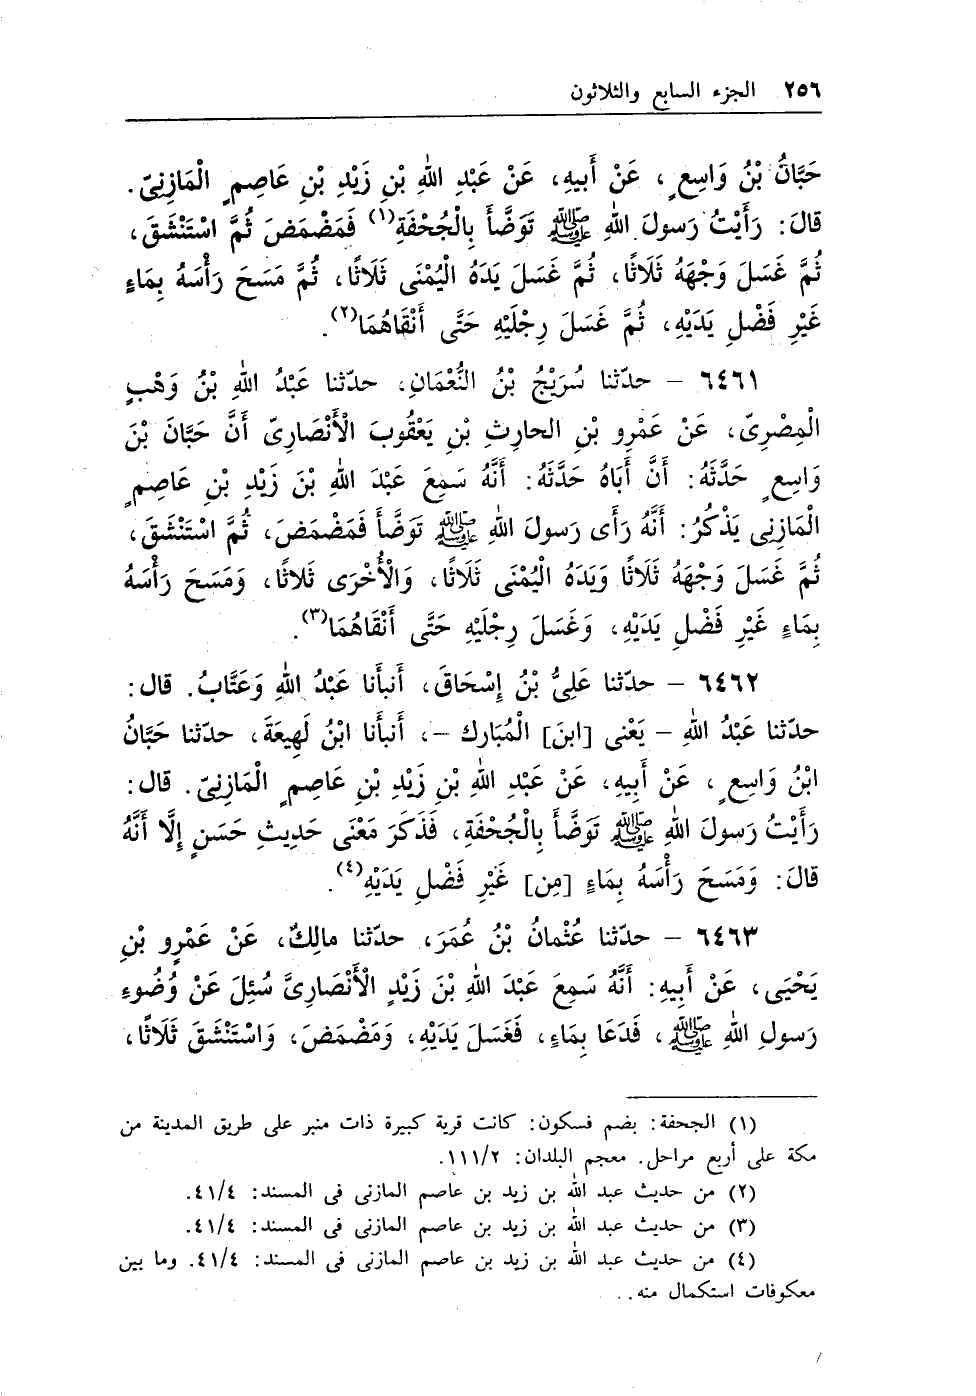 ٢٥٦ الجزء السابع والثلاثون
حَبَّانُ بْنُ وَاسِعٍ، عَنْ أَبيهِ، عَنْ عَبْدِ اللهِ بْنِ زَيْدِ بْنِ عَاصِمٍ الْمَازِنِىّ.
قالَ: رَأَيْتُ رَسولَ اللهِ ﷺ تَوَضَّأَ بِالْجُحْفَةِ(١) فَمَضْمَضَ ثُمَّ اسْتَنْشَقَ،
ثُمَّ غَسَلَ وَجْهَهُ ثَلَاثًا، ثُمَّ غَسَلَ يَدَهُ الْيُمْنَى ثَلَاثًا، ثُمَّ مَسَحَ رَأْسَهُ بِمَاءٍ
غَيْرِ فَضْلِ يَدَيْهِ، ثُمَّ غَسَلَ رِجْلَيْهِ حَتَّى أَنْقَاهُمَا(٢).
٦٤٦١ – حدّثنا سُرَيْجُ بْنُ النُّعْمَانِ، حدّثنا عَبْدُ اللهِ بْنُ وَهْبٍ
الْمِصْرِىّ، عَنْ عَمْرِو بْنِ الحارِثِ بْنِ يَعْقُوبَ الْأَنْصَارِىّ أَنَّ حَبَّانَ بْنَ
وَاسِعٍ حَدَّثَهُ: أَنَّ أَبَاهُ حَدَّثَهُ: أَنَّهُ سَمِعَ عَبْدَ اللهِ بْنَ زَيْدِ بْنِ عَاصِمٍ
الْمَازِنِى يَذْكُرُ: أَنَّهُ رَأى رَسولَ اللهِ ﷺ تَوَضَّأَ فَمَضْمَضَ، ثُمَّ اسْتَنْشَقَ،
ثُمَّ غَسَلَ وَجْهَهُ ثَلَاثًا وَيَدَهُ الْيُمْنَى ثَلَاثًا، وَالْأُخْرَى ثَلاثًا، وَمَسَحَ رَأْسَهُ
بِمَاءٍ غَيْرِ فَضْلِ يَدَيْهِ، وَغَسَلَ رِجْلَيْهِ حَتَّى أَنْقَاهُمَا(٣).
٦٤٦٢ – حدّثنا عَلِىُّ بْنُ إسْحَاقَ، أَنبأَنا عَبْدُ اللهِ وَعَتَّابُ. قال:
حدّثنا عَبْدُ اللهِ – يَعْنى [ابنَ] الْمُبَارك –، أَنبأَنا ابْنُ لَهِيعَةَ، حدّثنا حَبَّانُ
ابْنُ وَاسِعٍ، عَنْ أَبيهِ، عَنْ عَبْدِ اللهِ بْنِ زَيْدِ بْنِ عَاصِمٍ الْمَازِنىّ. قال:
رَأَيْتُ رَسولَ اللهِ ﷺ تَوَضَّأَ بِالْجُحْفَةِ، فَذَكَرَ مَعْنَى حَدِيثِ حَسَنٍ إلَّا أَنَّهُ
قالَ: وَمَسَحَ رَأْسَهُ بِمَاءٍ [مِن] غَيْرِ فَضْلِ يَدَيْهِ(٤).
٦٤٦٣ – حدّثنا عُثْمانُ بْنُ عُمَرَ، حدّثنا مالِكٌ، عَنْ عَمْرِو بْنِ
يَحْيَى، عَنْ أَبِيهِ: أَنَّهُ سَمِعَ عَبْدَ اللهِ بْنَ زَيْدٍ الْأَنْصَارِىَّ سُئِلَ عَنْ وُضُوءِ
رَسولِ اللهِ ﷺ، فَدَعَا بِمَاءٍ، فَغَسَلَ يَدَيْهِ، وَمَضْمَضَ، وَاسْتَنْشَقَ ثَلَاثًا،
(١) الجحفة: بضم فسكون: كانت قرية كبيرة ذات منبر على طريق المدينة من
مكة على أربع مراحل. معجم البلدان: ١١١/٢.
(٢) من حديث عبد الله بن زيد بن عاصم المازنى فى المسند: ٤١/٤.
(٣) من حديث عبد الله بن زيد بن عاصم المازنى فى المسند: ٤١/٤.
(٤) من حديث عبد الله بن زيد بن عاصم المازنى فى المسند: ٤١/٤. وما بين
معكوفات استكمال منه..